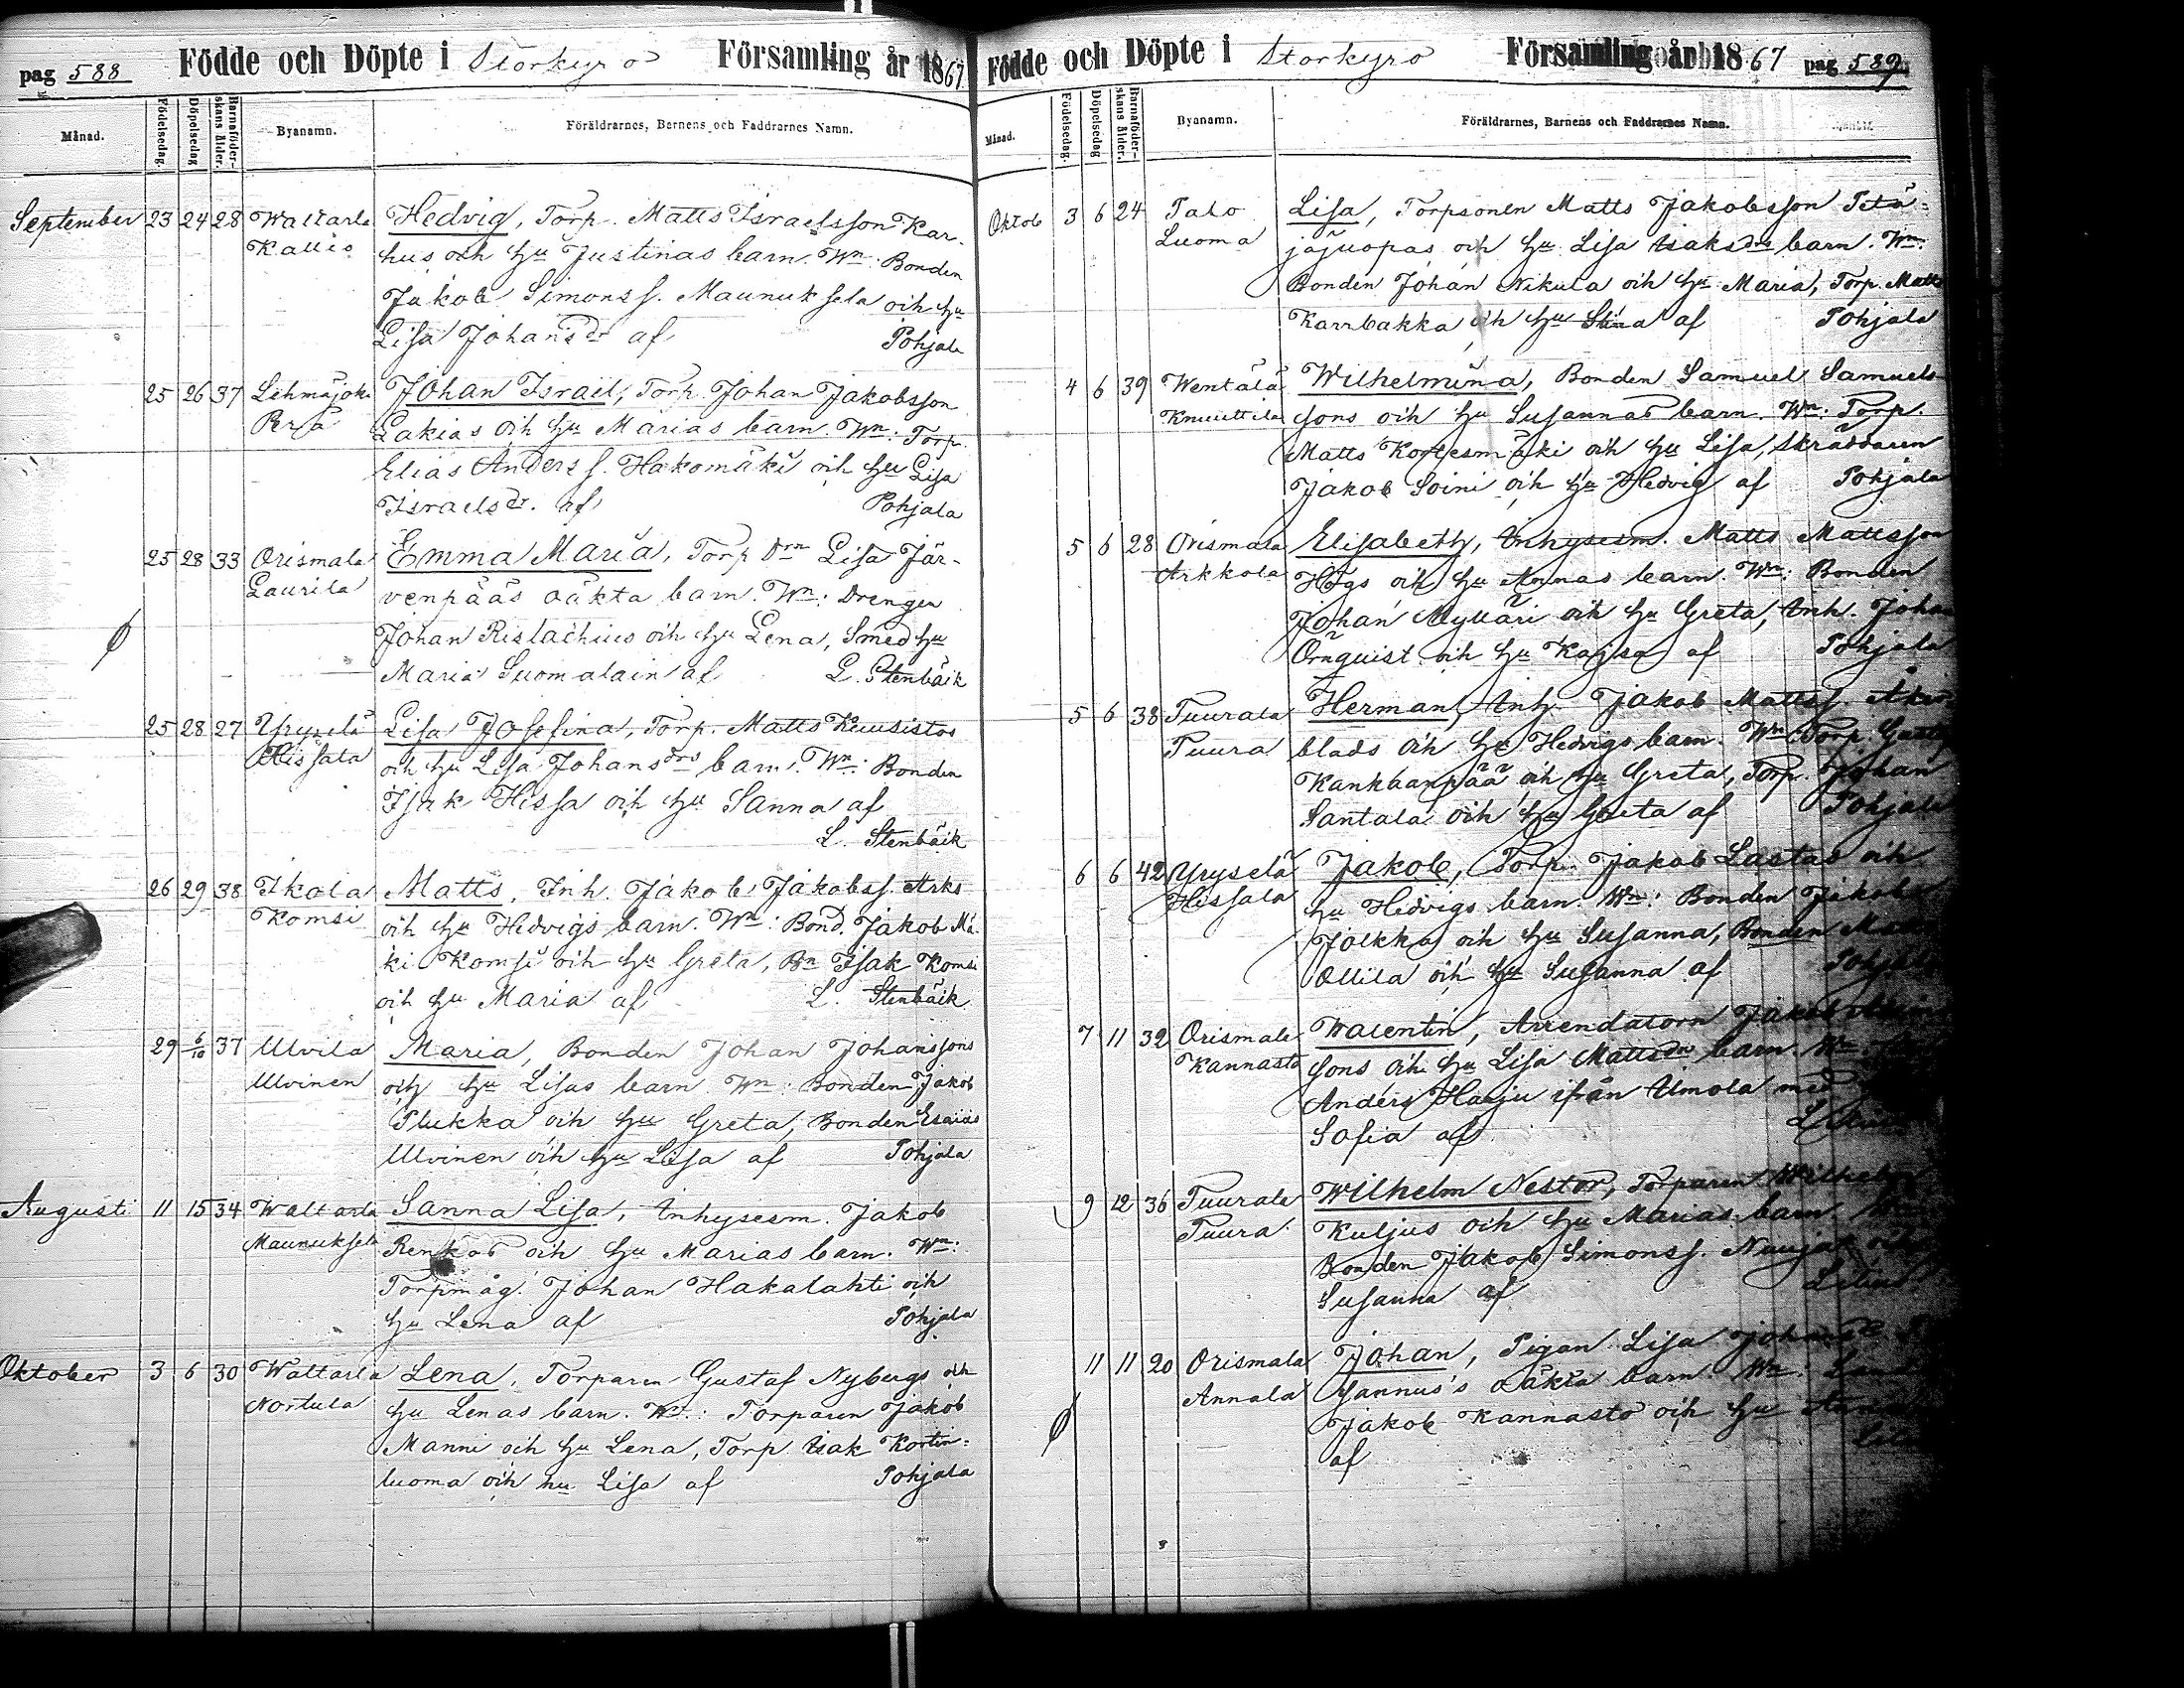 pag 588 Födde och Döpte i Storkyro Församling år 1867
Månad. Födelsedag. Döpelsedag Barnaföderskans ålder. Byanamn. Föräldrarnes, Barnens och Faddrarnes Namn.
September 23 24 28 Waltarla Hedvig, Torp. Matts Israelsson Kar-
Kallio hus och hu Justinas barn. Wn: Bonden
Jakob Simonss. Maunuksela och hu
Lisa Johansdr af Pohjala
25 26 37 Lehmäjoki Johan Israel, Torp. Johan Jakobsson
Perä Lakias och hu Marias barn. Wn: Torp.
Elias Anderss. Hakomäki och hu Lisa
Israelsdr. af Pohjala
25 28 33 Orismala Emma Maria, Torp drn Lisa Jär-
Laurila venpääs oäkta barn. Wn: Drengen
Johan Ristachius och hu Lena, Smed hu
Maria Suomalain af L. Stenbäck
25 28 27 Yryselä Lisa Josefina, Torp. Matts Kuusistos
Hissala och hu Lisa Johansdrs barn. Wn: Bonden
Isrk Hissa och hu Sanna af
L. Stenbäck
26 29 38 Ikola Matts, Inh. Jakob Jakobss. Arks
Komsi och hu Hedvigs barn. Wn: Bond. Jakob Mä-
ki Komsi och hu Greta, Bn Isak Komsi
och hu Maria af L. Stenbäck
29 6/10 37 Ulvila Maria, Bonden Johan Johanssons
Ulvinen och hu Lisas barn Wn: Bonden Jakob
Plukka och hu Greta, Bonden Esaias
Ulvinen och hu Lisa af Pohjala
Augusti 11 15 34 Waltarla Sanna Lisa, Inhysesm. Jakob
Maunuksela Renkos och hu Marias barn. Wn:
Torpmåg. Johan Hakalahti och
hu Lena af Pohjala
Oktober 3 6 30 Waltarla Lena, Torparen Gustaf Nybergs och
Nortula hu Lenas barn. Wn: Torparen Jakob
Manni och hu Lena, Torp Isak Kortin-
luoma och hu Lisa af Pohjala
Födde och Döpte i Storkyro Församling år 1867 pag 589
Månad. Födelsedag. Döpelsedag Barnaföderskans ålder. Byanamn. Föräldrarnes, Barnens och Faddrarnes Namn.
Oktob 3 6 24 Palo Lisa, Torpsonen Matts Jakobsson Petä-
Luoma jäjuopas och hu Lisa Isaksdrs barn. Wn:
Bonden Johan Nikula och hu Maria, Torp. Matts
Karrbakka och hu Stina af Pohjala
4 6 39 Wentälä Wilhelmina, Bonden Samuel Samuels-
Knuuttila sons och hu Susannas barn. Wn: Torp.
Matts Kortesmäki och hu Lisa, Skräddaren
Jakob Soini och hu Hedvig af Pohjala
5 6 28 Orismala Elisabeth, Inhysesm. Matts Mattsson
Arkkola Högs och hu Annas barn. Wn: Bonden
Johan Mylläri och hu Greta, Inh. Johan
Örnquist och hu Kajsa af Pohjala
5 6 38 Tuurala Herman, Inh. Jakob Mattss.
Tuura blads och hu Hedvigs barn. Wn: Torp.
Kankaanpää och hu Greta, Torp. Johan
Santala och hu Greta af Pohjala
6 6 42 Yryselä Jakob, Torp. Jakob Lastas och
Hissala hu Hedvigs barn. Wn: Bonden Jakob
Jolkka och hu Susanna, Bonden
Ollila och hu Susanna af
7 11 32 Orismala Walentin, Arrendatorn Jakob
Kannasto sons och hu Lisa Mattsdrs barn. Wn:
Anders Harju ifrån Ilmola med
Sofia af
9 12 36 Tuurala Wilhelm Nestor, Torparen Wilhelm
Tuura Kuljus och hu Marias barn.
Bonden Jakob Simonss.
Susanna af
11 11 20 Orismala Johan, Pigan Lisa Johansdr
Annala Yannus's oäkta barn. Wn:
Jakob Kannasto och hu
af